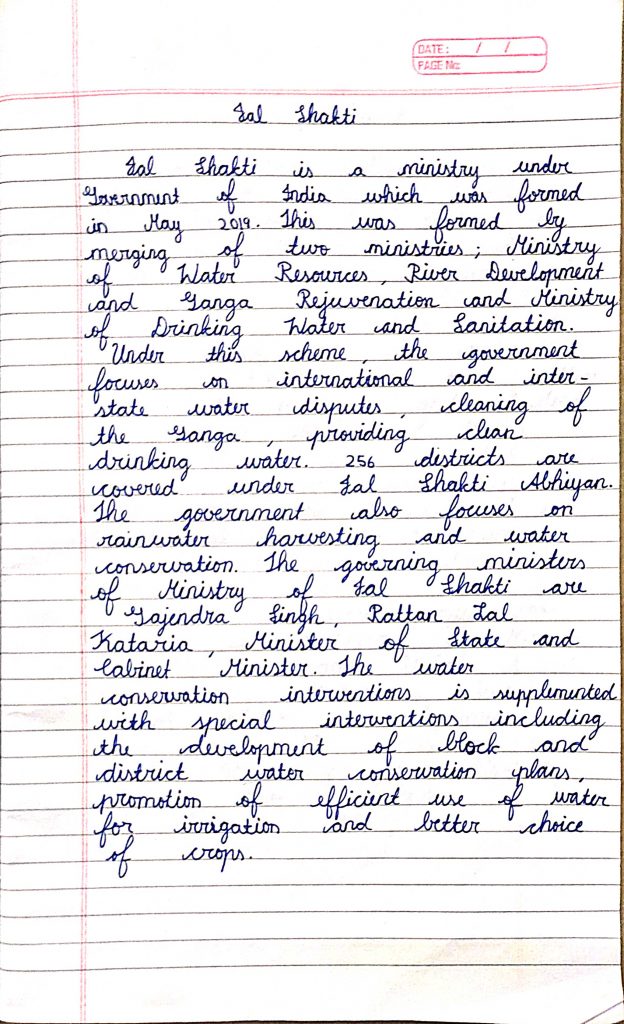 DATE: / /
PAGE No:
Jal Shakti
Jal Shakti is a ministry under
Government of India which was formed
in May 2019. This was formed by
merging of two ministries; Ministry
of Water Resources, River Development
and Ganga Rejuvenation and Ministry
of Drinking Water and Sanitation.
Under this scheme, the government
focuses on international and inter-
state water disputes, cleaning of
the Ganga, providing clean
drinking water. 256 districts are
covered under Jal Shakti Abhiyan.
The government also focuses on
rainwater harvesting and water
conservation. The governing ministers
of Ministry of Jal Shakti are
Gajendra Singh, Rattan Lal
Kataria, Minister of State and
Cabinet Minister. The water
conservation interventions is supplemented
with special interventions including
the development of block and
district water conservation plans,
promotion of efficient use of water
for irrigation and better choice
of crops.